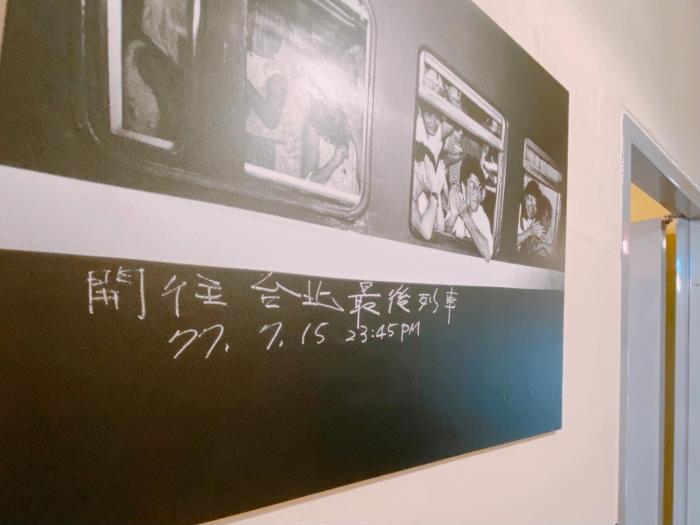 開往 台北 最後列車
77. 7. 15 23:45 PM